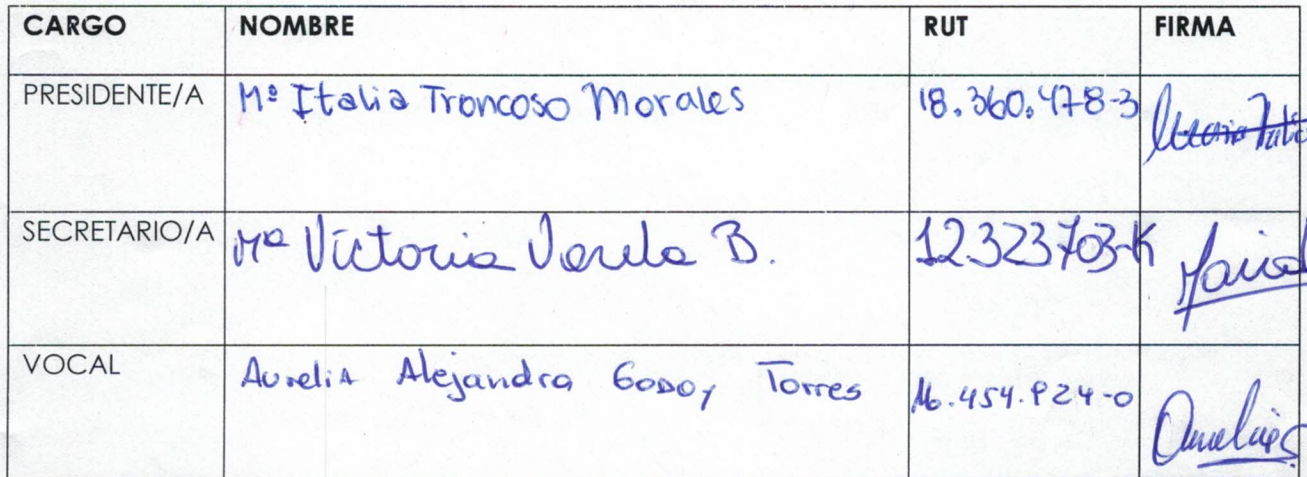 CARGO NOMBRE RUT FIRMA
PRESIDENTE/A Mª Italia Troncoso Morales 18.360.478-3
SECRETARIO/A Mª Victoria Varela B. 12.323.703-K María
VOCAL Aurelia Alejandra Godoy Torres